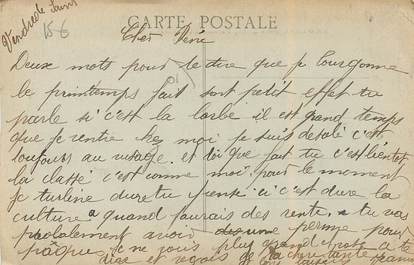 Vendredi
156
CARTE POSTALE
Cher René
Deux mots pour te dire que je bourgonne
le printemps fait sont petit effet tu
parle si c'est la barbe il est grand temps
que je rentre kez moi je suis désolé c'est
toujours au usage. et toi que fait tu c'est bientot
la classe c'est comme moi pour le moment
je turbine dure tu pense ici c'est dure la
culture a quand j'aurais des rente. tu vas
probablement avoir une perme pour
pâque, je ne vois plus grand chose a te
dire et reçois de